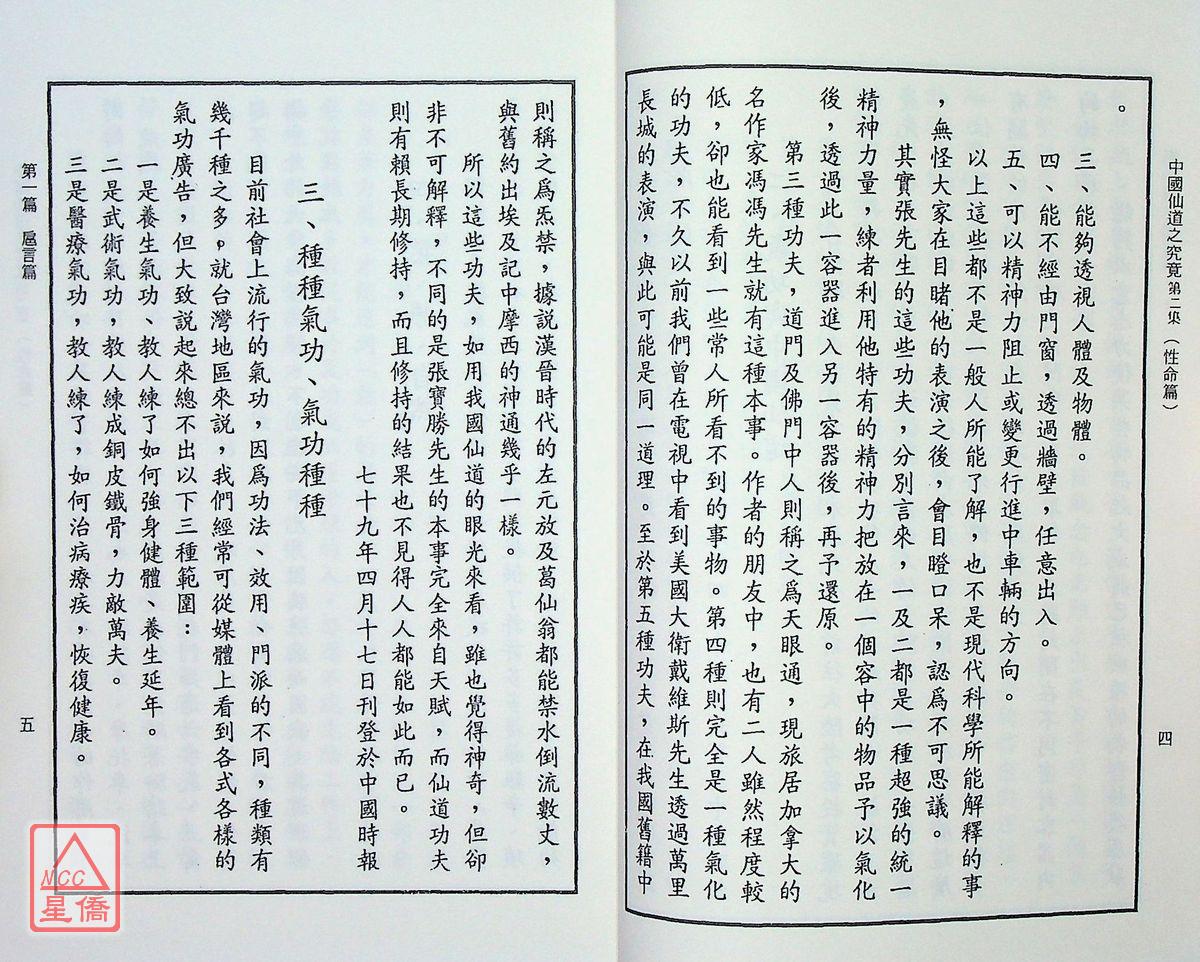 中國仙道之究竟第二集(性命篇)
四
。
三、能夠透視人體及物體。
四、能不經由門窗,透過牆壁,任意出入。
五、可以精神力阻止或變更行進中車輛的方向。
以上這些都不是一般人所能了解,也不是現代科學所能解釋的事
,無怪大家在目睹他的表演之後,會目瞪口呆,認爲不可思議。
其實張先生的這些功夫,分別言來,一及二都是一種超強的統一
精神力量,練者利用他特有的精神力把放在一個容中的物品予以氣化
後,透過此一容器進入另一容器後,再予還原。
第三種功夫,道門及佛門中人則稱之爲天眼通,現旅居加拿大的
名作家馮馮先生就有這種本事。作者的朋友中,也有二人雖然程度較
低,卻也能看到一些常人所看不到的事物。第四種則完全是一種氣化
的功夫,不久以前我們曾在電視中看到美國大衛戴維斯先生透過萬里
長城的表演,與此可能是同一道理。至於第五種功夫,在我國舊籍中
則稱之爲炁禁,據說漢晉時代的左元放及葛仙翁都能禁水倒流數丈,
與舊約出埃及記中摩西的神通幾乎一樣。
所以這些功夫,如用我國仙道的眼光來看,雖也覺得神奇,但卻
非不可解釋,不同的是張寶勝先生的本事完全來自天賦,而仙道功夫
則有賴長期修持,而且修持的結果也不見得人人都能如此而已。
七十九年四月十七日刊登於中國時報
三、種種氣功、氣功種種
目前社會上流行的氣功,因爲功法、效用、門派的不同,種類有
幾千種之多,就台灣地區來說,我們經常可從媒體上看到各式各樣的
氣功廣告,但大致說起來總不出以下三種範圍:
一是養生氣功、教人練了如何強身健體、養生延年。
二是武術氣功,教人練成銅皮鐵骨,力敵萬夫。
三是醫療氣功,教人練了,如何治病療疾,恢復健康。
第一篇 巵言篇
五
NCC
星僑